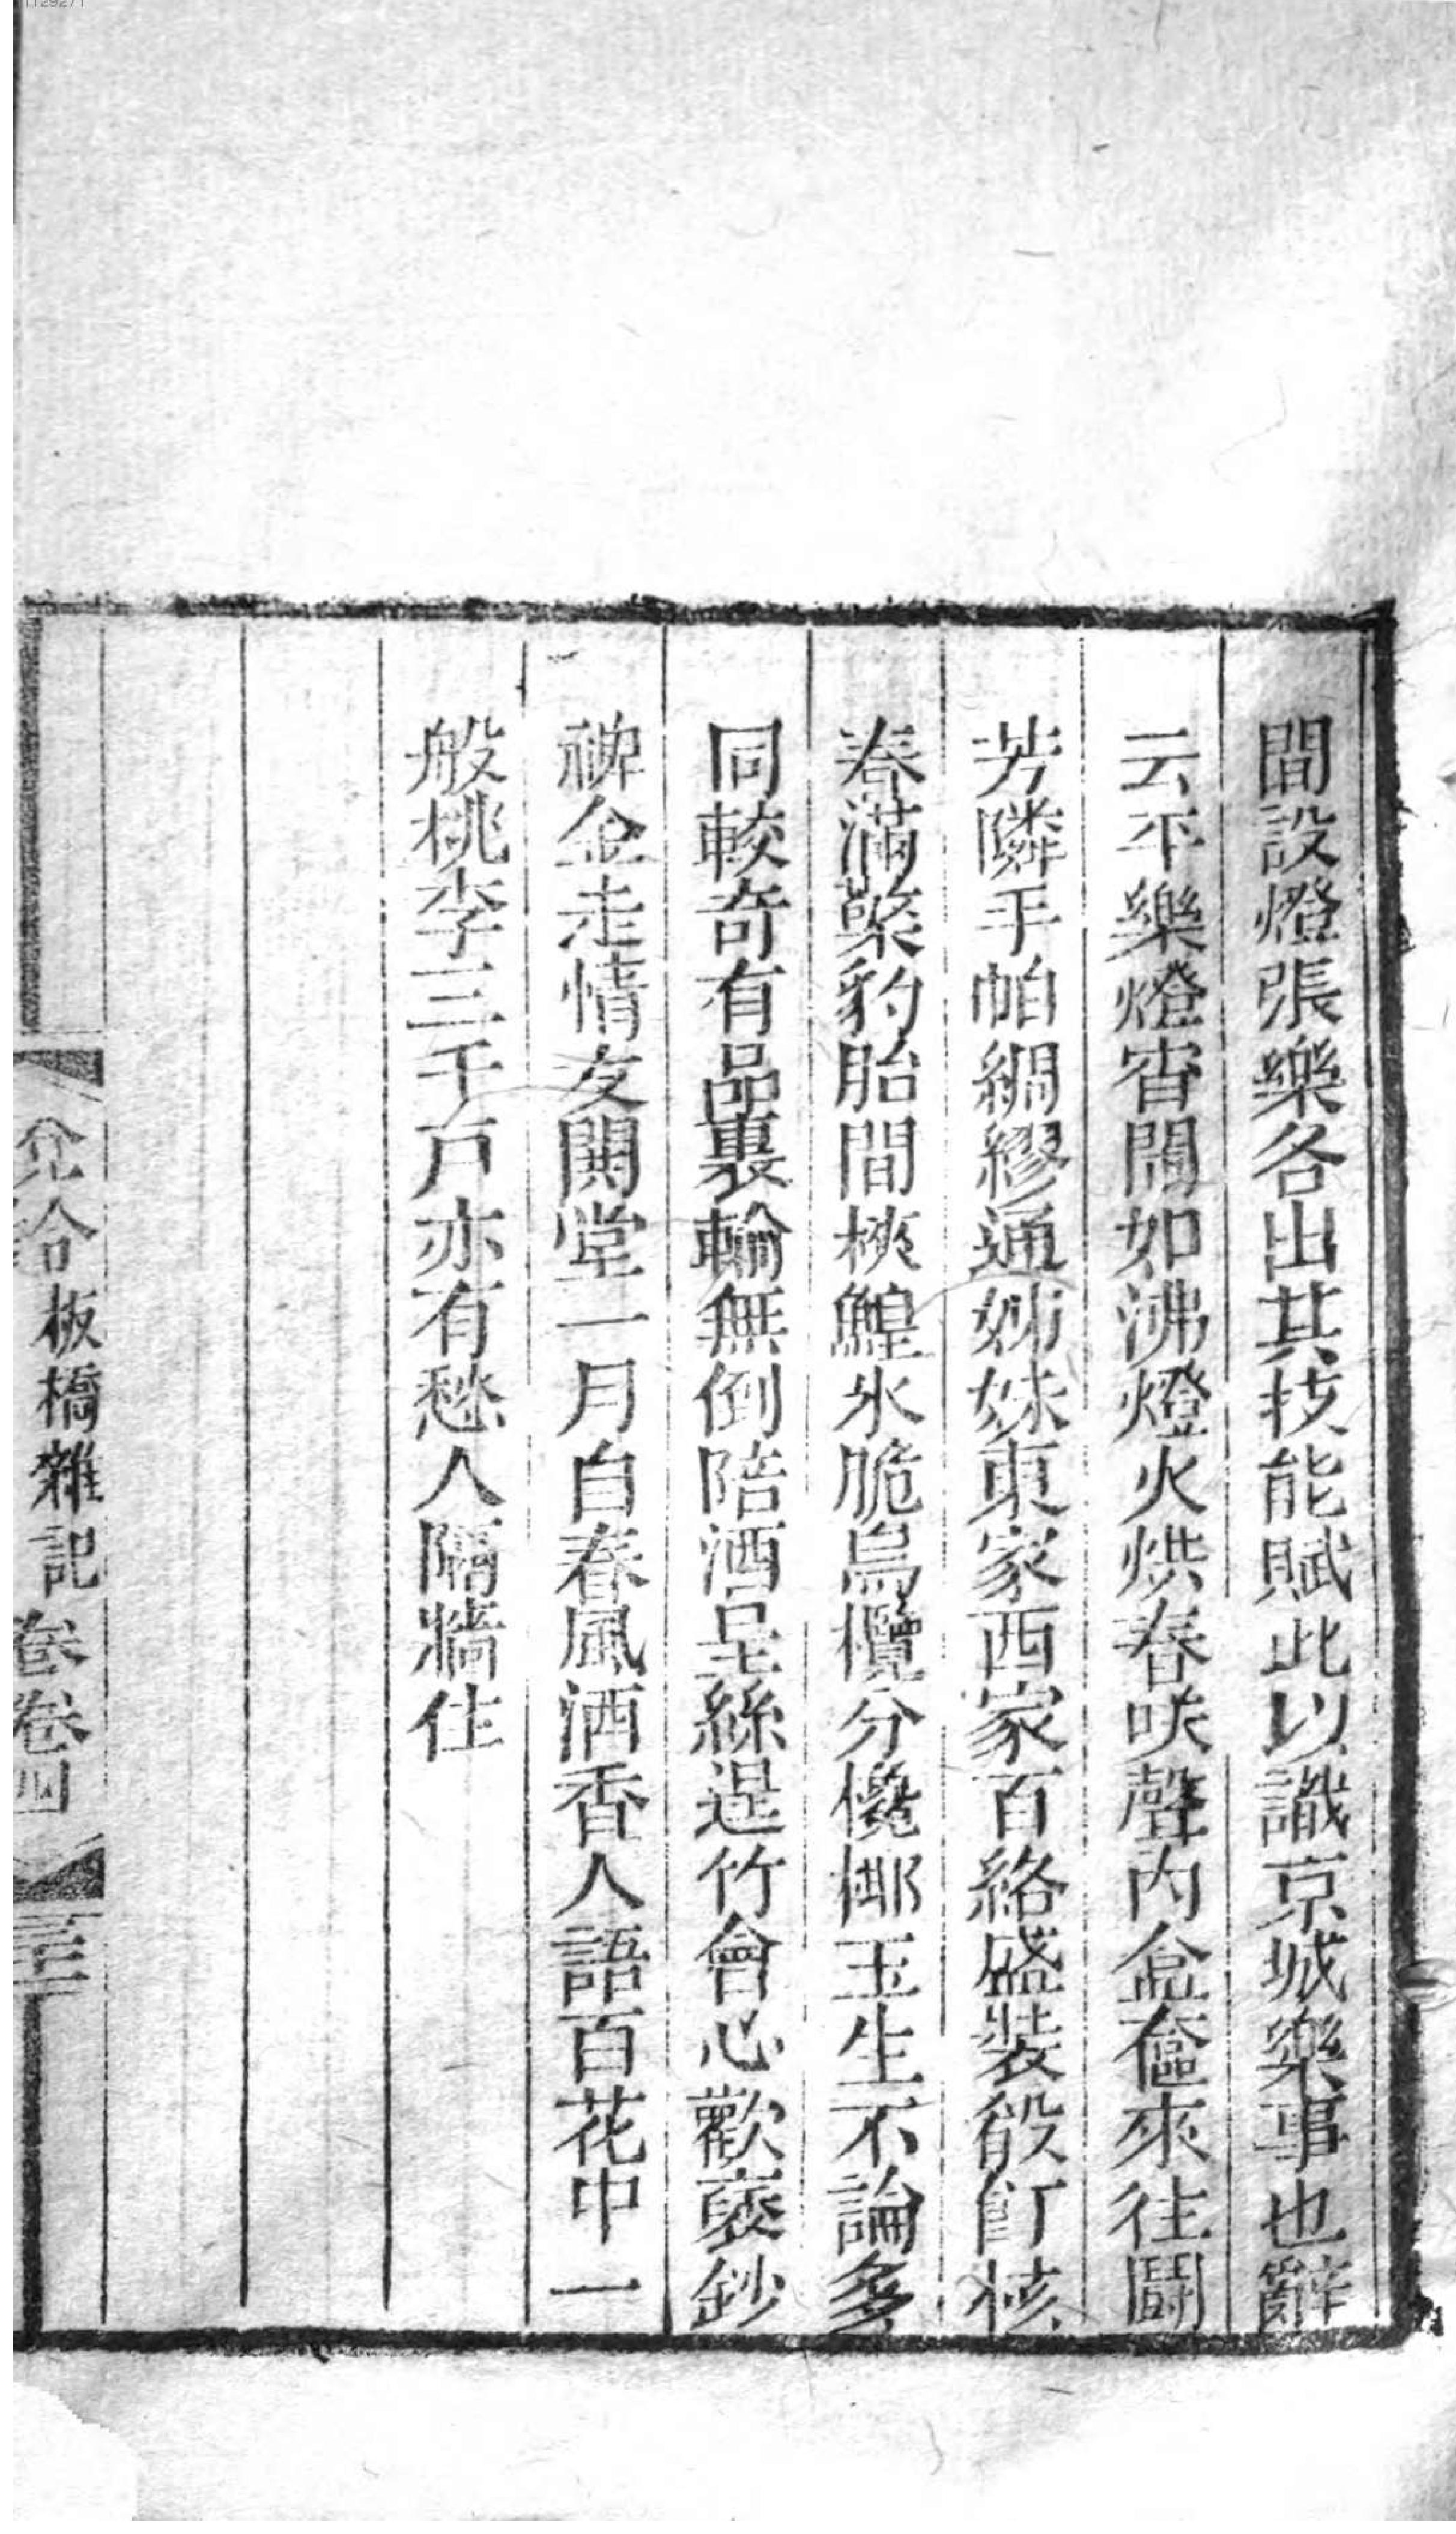 間設燈張樂各出其技能賦此以識京城樂事也辭
云平樂燈宵閙如沸燈火烘春咲聲内盒奩來往鬭
芳隣手帕綢繆通姊妹東家西家百絡盛裝殽飣核
春滿檠豹胎間挾鰉氷脆烏欖分欖椰玉生不論多
同較奇有品裏輸無倒陪酒呈絲逞竹會心歡褎鈔
裨金走情友閧堂一月自春風酒香人語百花中一
般桃李三千戸亦有愁人隔牆住
板橋雜記 卷四